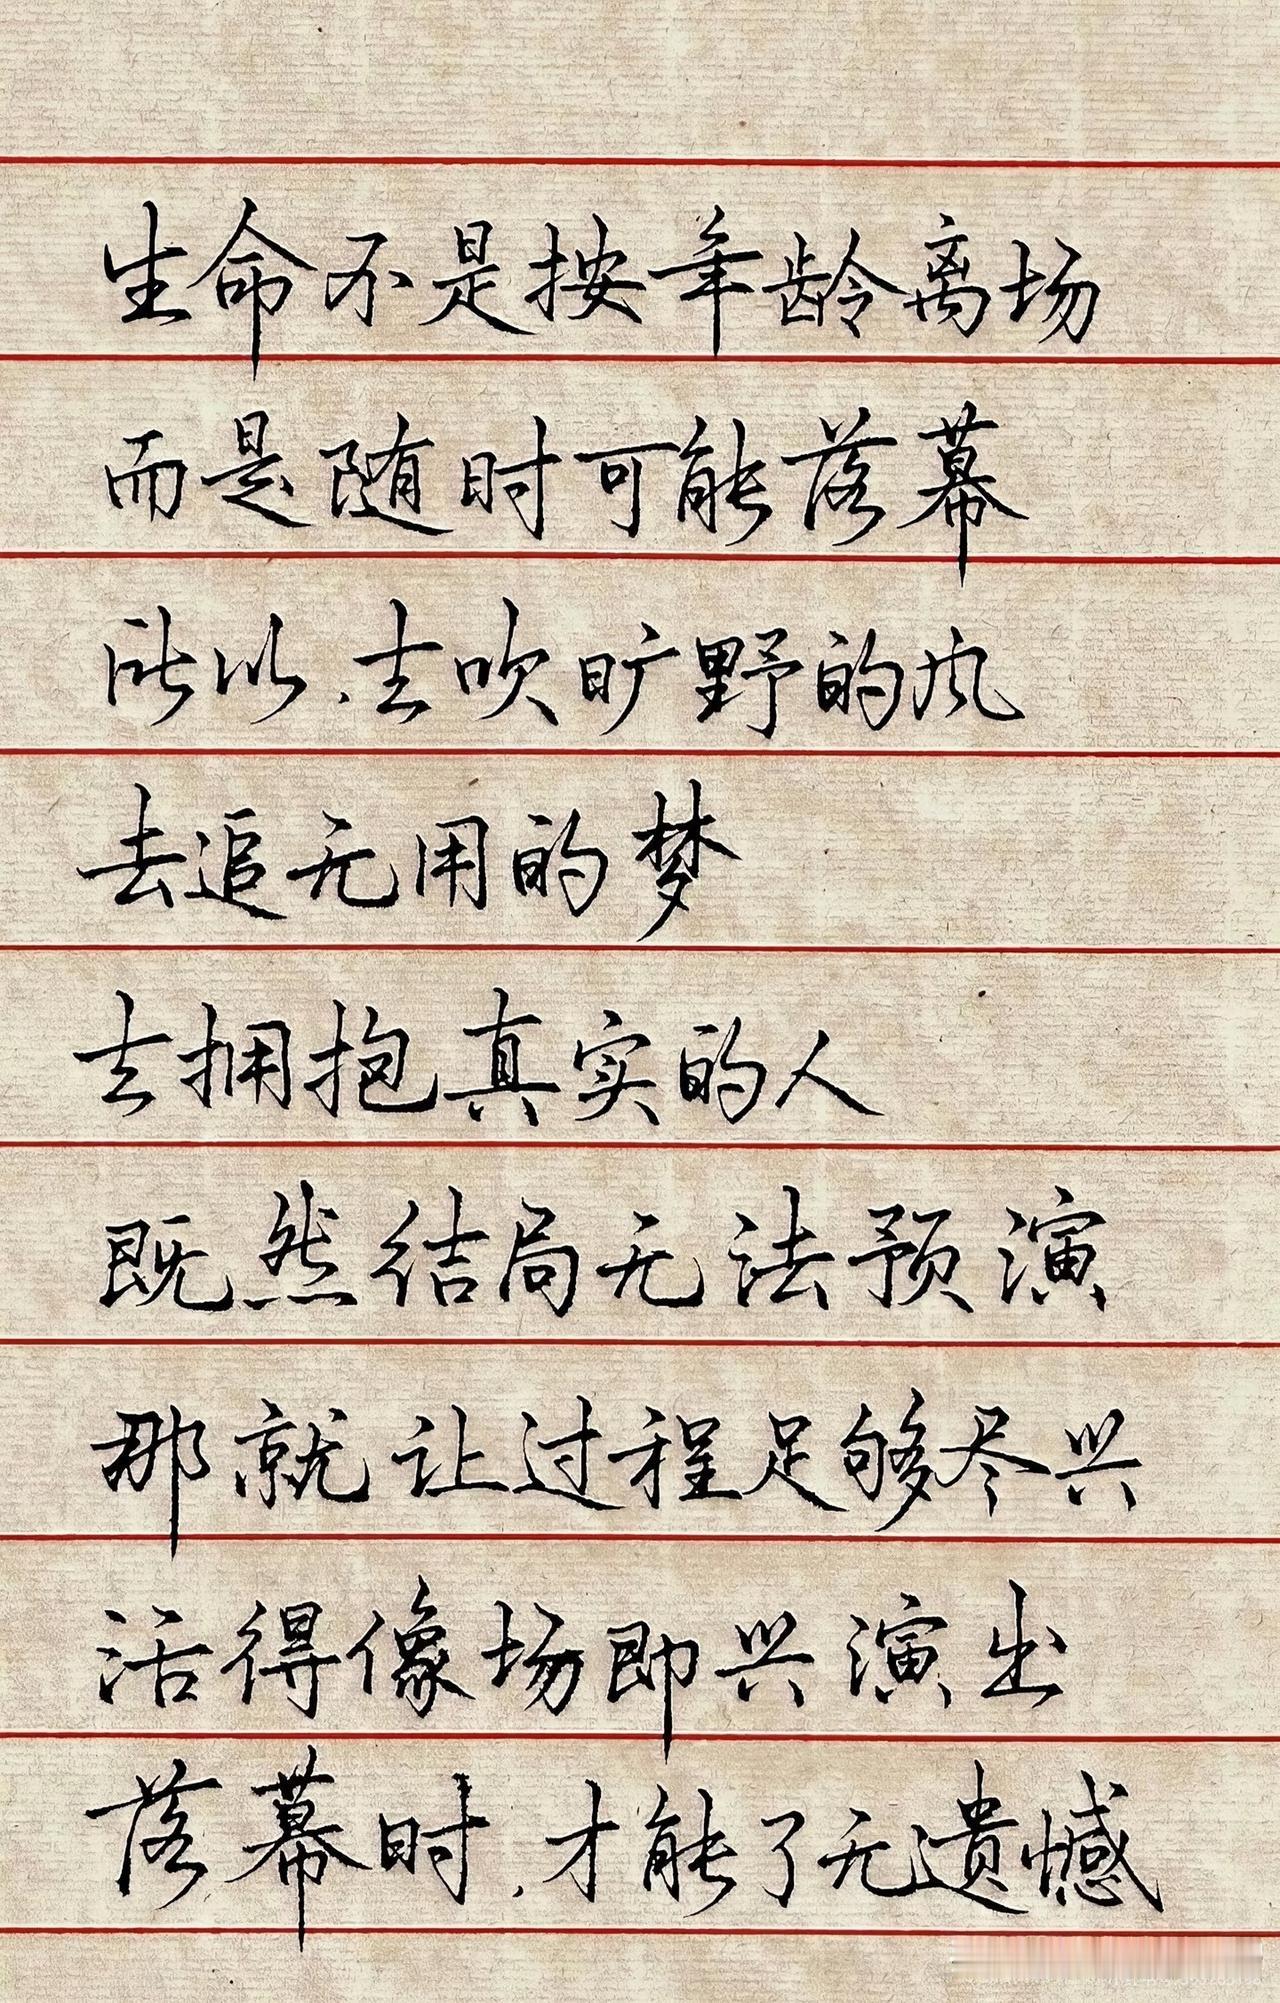 生命不是按年龄离场
而是随时可能落幕
所以、去吹旷野的风
去追无用的梦
去拥抱真实的人
既然结局无法预演
那就让过程足够尽兴
活得像场即兴演出
落幕时、才能了无遗憾